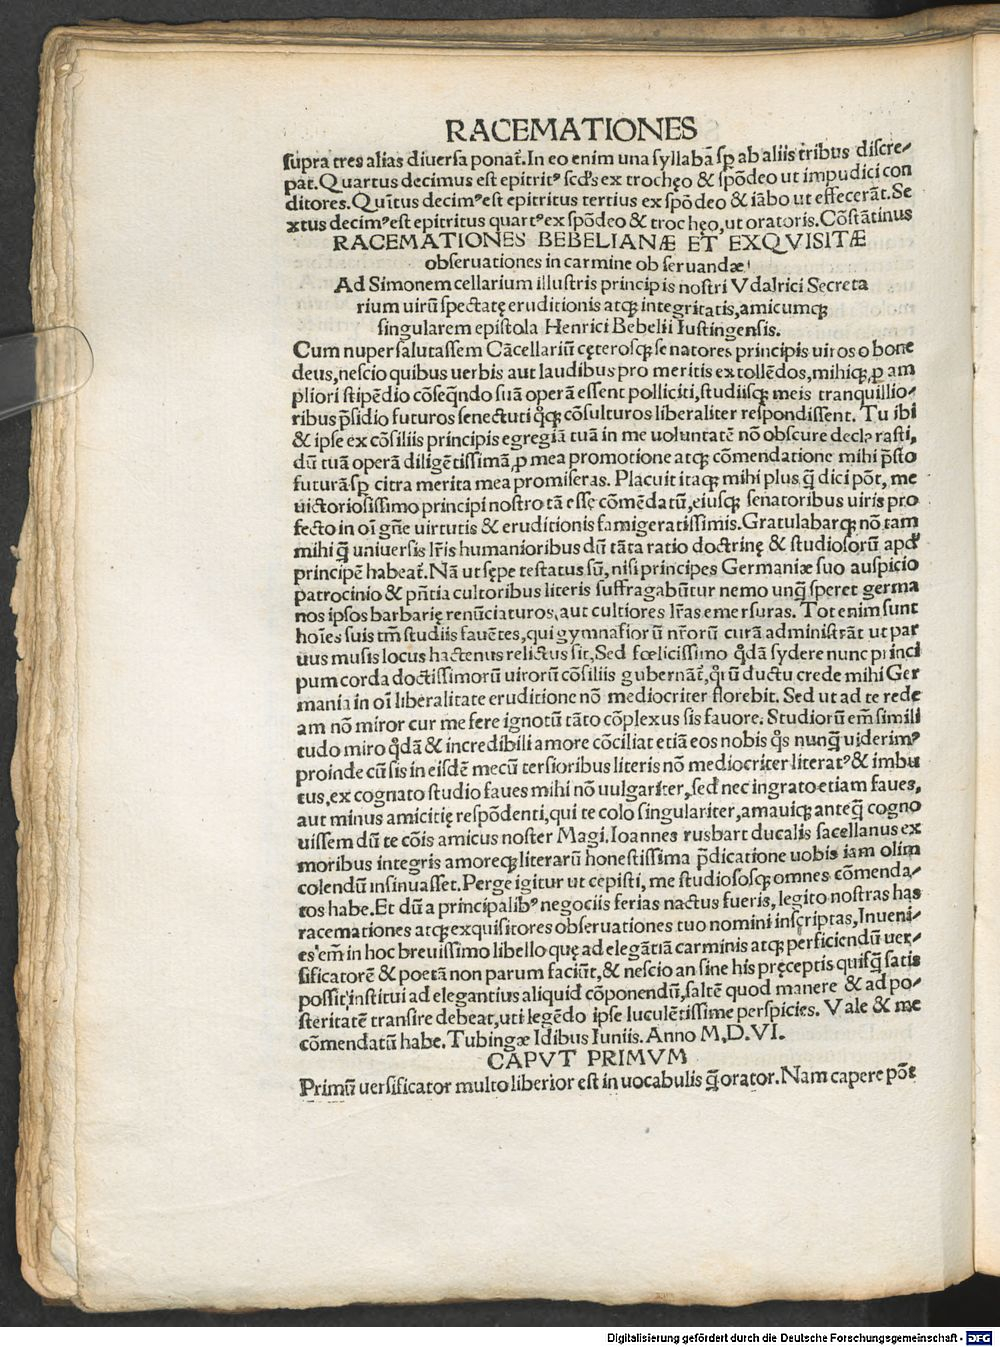 RACEMATIONES
supra tres alias diuersa ponat̃. In eo enim una syllabã sꝑ ab aliis tribus discre⸗
pat. Quartus decimus est epitritꝰ scd's ex trochęo & spõdeo ut impudici con
ditores. Quĩtus decimꝰ est epitritus tertius ex spõdeo & iãbo ut effecerãt. Se
xtus decimꝰ est epitritus quartꝰ ex spõdeo & trochęo, ut oratoris. Cõstãtinus
RACEMATIONES BEBELIANÆ ET EXQVISITÆ
obseruationes in carmine obseruandæ
Ad Simonem cellarium illustris principis nostri Vdalrici Secreta
rium uirũ spectatę eruditionis atqꝫ integritatis, amicumqꝫ
singularem epistola Henrici Bebelii Iustingensis.
Cum nuper salutassem Cãcellariũ cęterosqꝫ senatores principis uiros o bone
deus, nescio quibus uerbis aut laudibus pro meritis extollẽdos, mihiqꝫ, ꝓ am
pliori stipẽdio cõseq̃ndo suã operã essent polliciti, studiisqꝫ meis tranquillio⸗
ribus p̃sidio futuros senectuti q̊qꝫ cõsulturos liberaliter respondissent. Tu ibi
& ipse ex cõsiliis principis egregiã tuã in me uoluntatẽ nõ obscure declarasti,
dũ tuã operã diligẽtissimã, ꝓ mea promotione atqꝫ cõmendatione mihi p̃sto
futurã sꝑ citra merita mea promiseras. Placuit itaqꝫ mihi plus q̃ dici põt, me
uictoriosissimo principi nostro tã esse cõmẽdatũ, eiusqꝫ senatoribus uiris pro
fecto in oĩ gñe uirtutis & eruditionis famigeratissimis. Gratulabarqꝫ nõ tam
mihi q̃ uniuersis lr̃is humanioribus dũ tãta ratio doctrinę & studiosorũ apd'
principẽ habeat̃. Nã ut sępe testatus sũ, nisi principes Germaniæ suo auspicio
patrocinio & pñtia cultoribus literis suffragabũtur nemo unq̃ speret germa
nos ipsos barbariẽ renũciaturos, aut cultiores lr̃as emersuras. Tot enim sunt
hoĩes suis tm̃ studiis fauẽtes, qui gymnasiorũ nr̃orũ curã administrãt ut par
uus musis locus hactenus relictus sit, Sed fœlicissimo q̊dã sydere nunc princi
pum corda doctissimorũ uirorũ cõsiliis gubernãt̃, q̊rũ ductu crede mihi Ger
mania in oĩ liberalitate eruditione nõ mediocriter florebit. Sed ut ad te rede
am nõ miror cur me fere ignotũ tãto cõplexus sis fauore. Studiorũ em̃ simili
tudo miro q̊dã & incredibili amore cõciliat etiã eos nobis q̊s nunq̃ uiderimꝰ
proinde cũ sis in eisdẽ mecũ tersioribus literis nõ mediocriter literatꝰ & imbu
tus, ex cognato studio faues mihi nõ uulgariter, sed nec ingrato etiam faues,
aut minus amicitię respõdenti, qui te colo singulariter, amauiqꝫ anteq̃ cogno
uissem dũ te cõis amicus noster Magi. Ioannes rusbart ducalis sacellanus ex
moribus integris amoreqꝫ literarũ honestissima p̃dicatione uobis iam olim
colendũ insinuasset. Perge igitur ut cepisti, me studiososqꝫ omnes cõmenda⸗
tos habe. Et dũ a principalibꝰ negociis ferias nactus fueris, legito nostras has
racemationes atqꝫ exquisitores obseruationes tuo nomini inscriptas, Inueni⸗
es em̃ in hoc breuissimo libello quę ad elegãtiã carminis atqꝫ perficiendũ uer⸗
sificatorẽ & poetã non parum faciũt, & nescio an sine his pręceptis quisq̃ satis
possit institui ad elegantius aliquid cõponendũ, saltẽ quod manere & ad po⸗
steritatẽ transire debeat, uti legẽdo ipse luculẽtissime perspicies. Vale & me
cõmendatũ habe. Tubingæ Idibus Iuniis. Anno M.D.VI.
CAPVT PRIMVM
Primũ uersificator multo liberior est in uocabulis q̃ orator. Nam capere põt
Digitalisierung gefördert durch die Deutsche Forschungsgemeinschaft - DFG